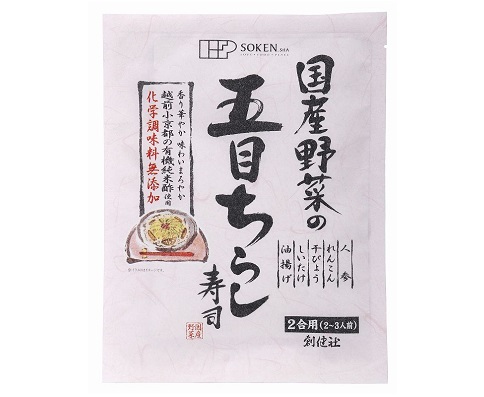 SOKEN SHA
国産野菜の
五目ちらし
寿司
香り華やか 味わいまろやか
越前小京都の有機純米酢使用
化学調味料無添加
人参
れんこん
干ぴょう
しいたけ
油揚げ
国産
野菜
2合用(2~3人前)
創健社